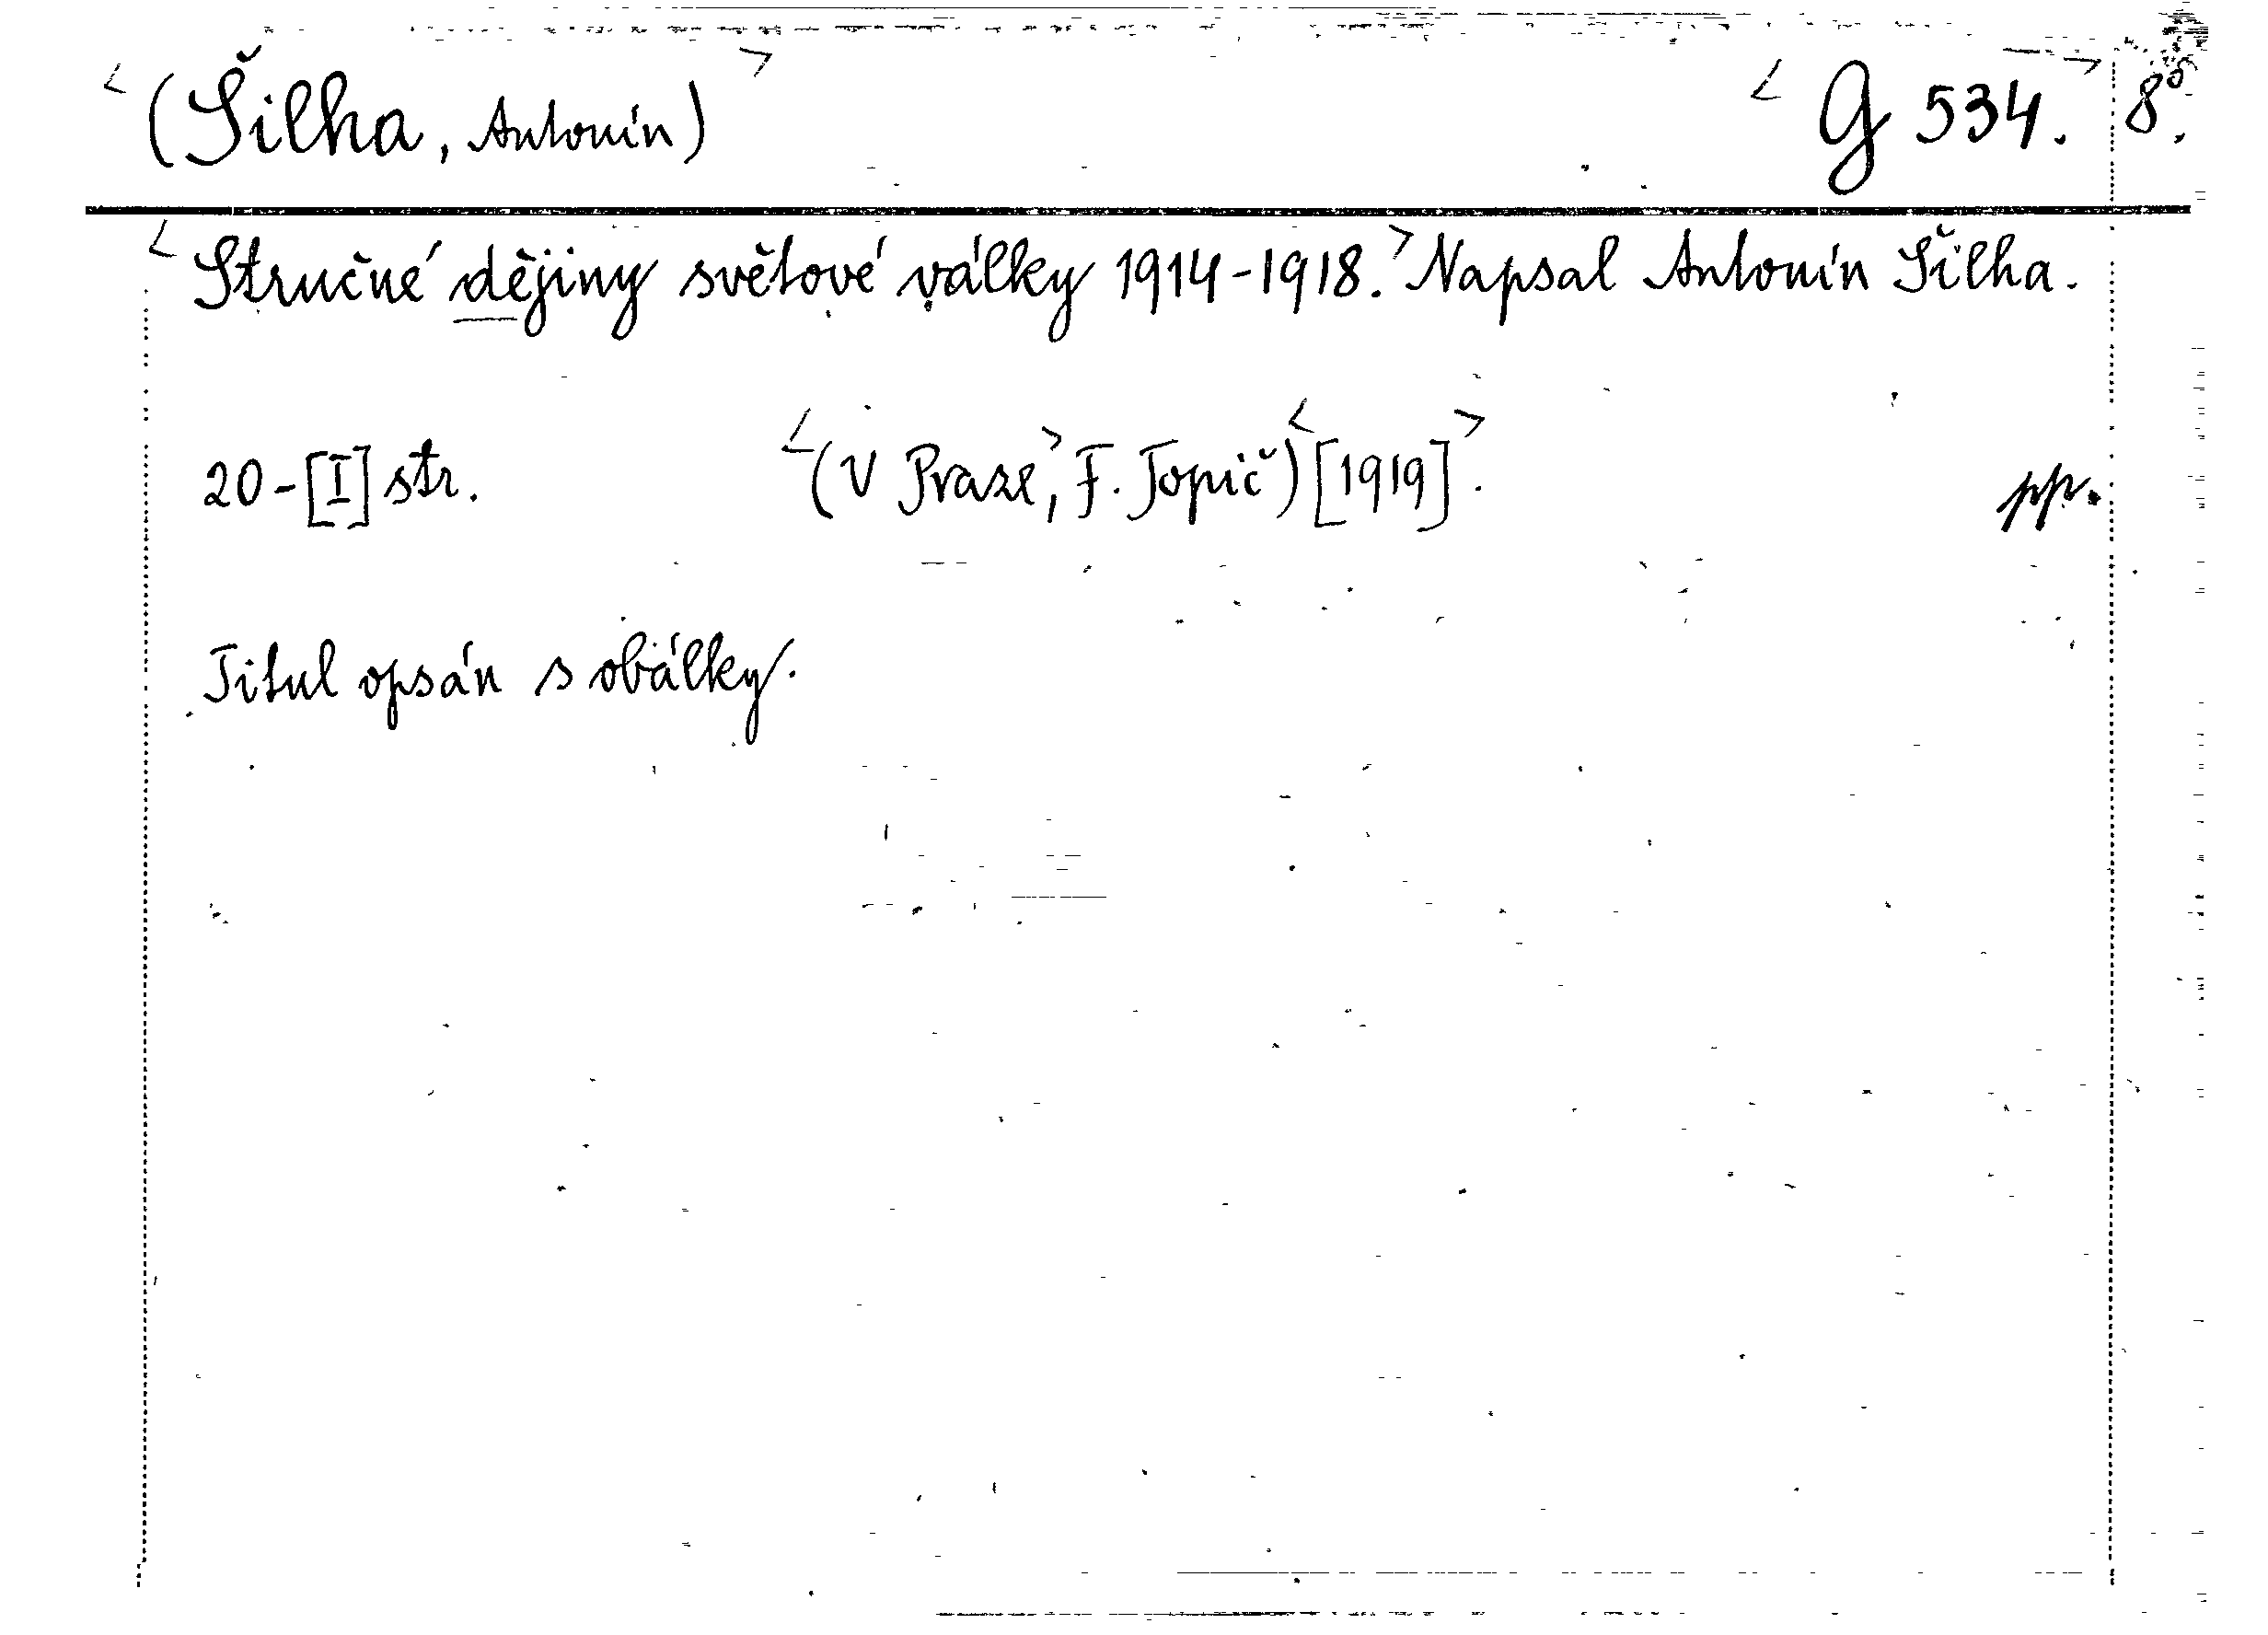 <(Šilha, Antonín)> <G 534.> 8°.
<Stručné dějiny světové války 1914-1918.> Napsal Antonín Šilha.
20-[I] str. <(V Praze,> F. Topič)<[1919]>. pp.
Titul opsán s obálky.